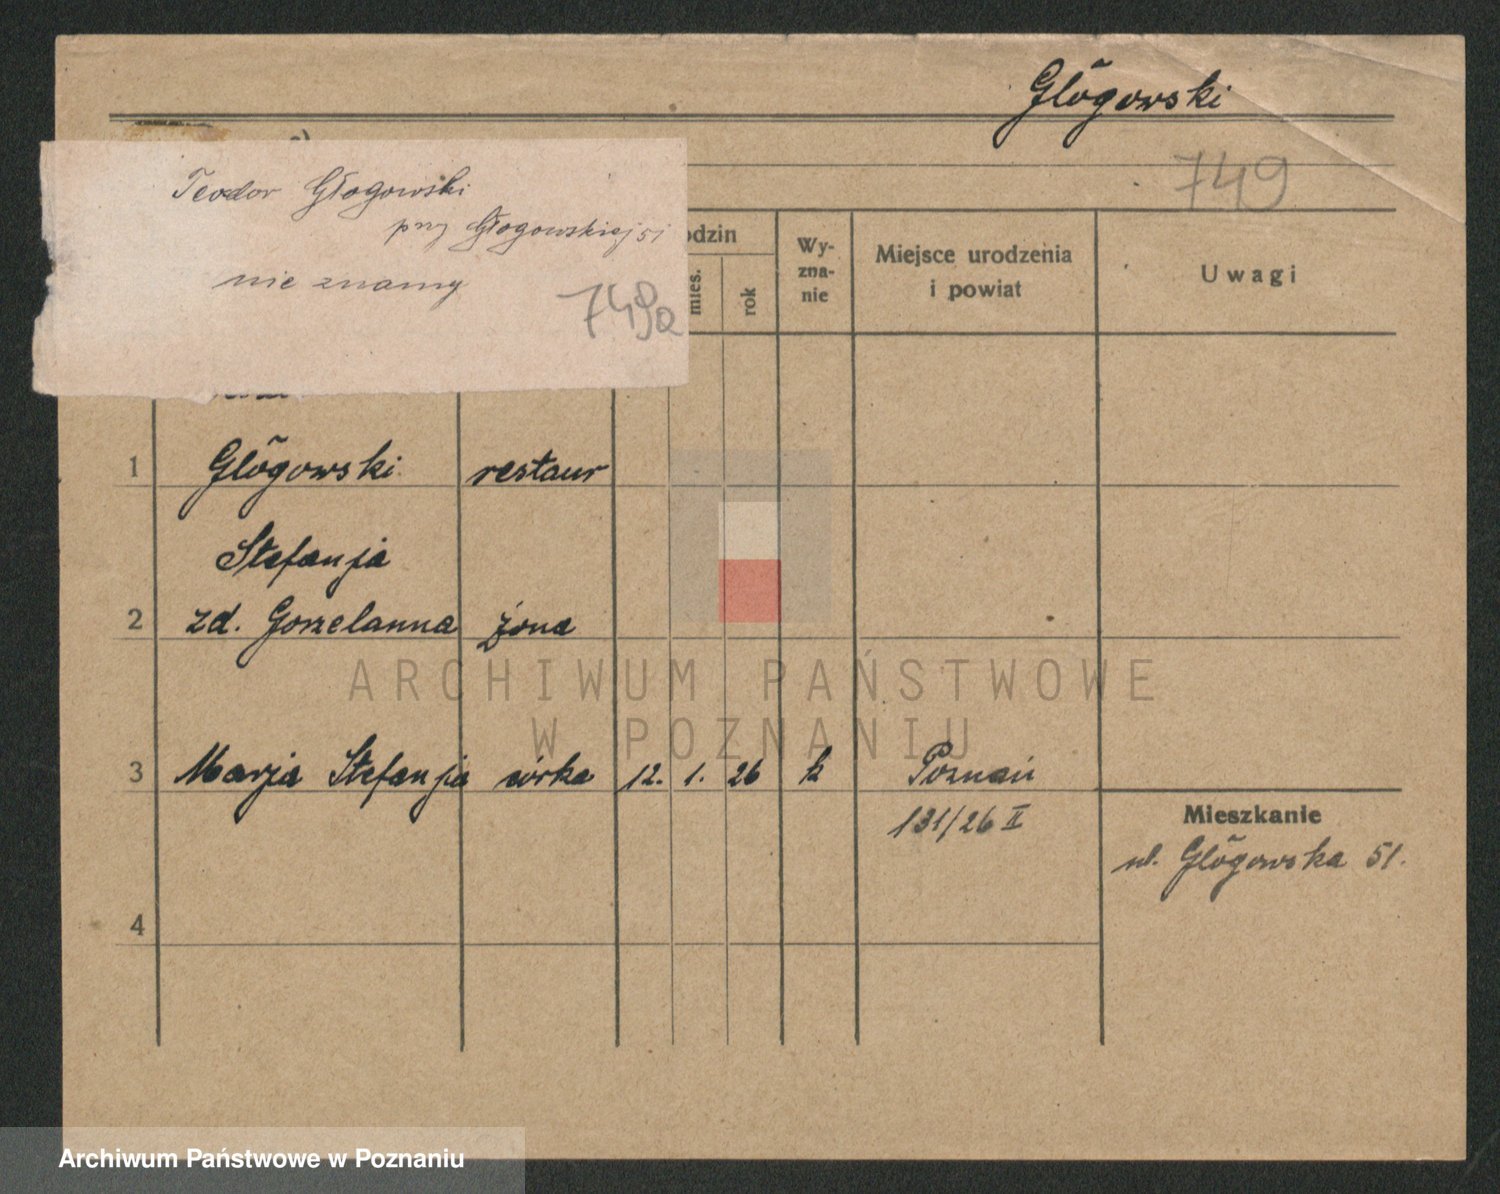 Głogowski
749
Teodor Głogowski
przy Głogowskiej 51
nie znamy
749a
odzin
mies.
rok
Wy-
zna-
nie
Miejsce urodzenia
i powiat
Uwagi
1 Głogowski restaur
Stefanja
2 zd. Gorzelanna żona
3 Marja Stefanja córka 12. 1. 26 k Poznań
131/26 II
Mieszkanie
ul. Głogowska 51.
4
ARCHIWUM PAŃSTWOWE
W POZNANIU
Archiwum Państwowe w Poznaniu